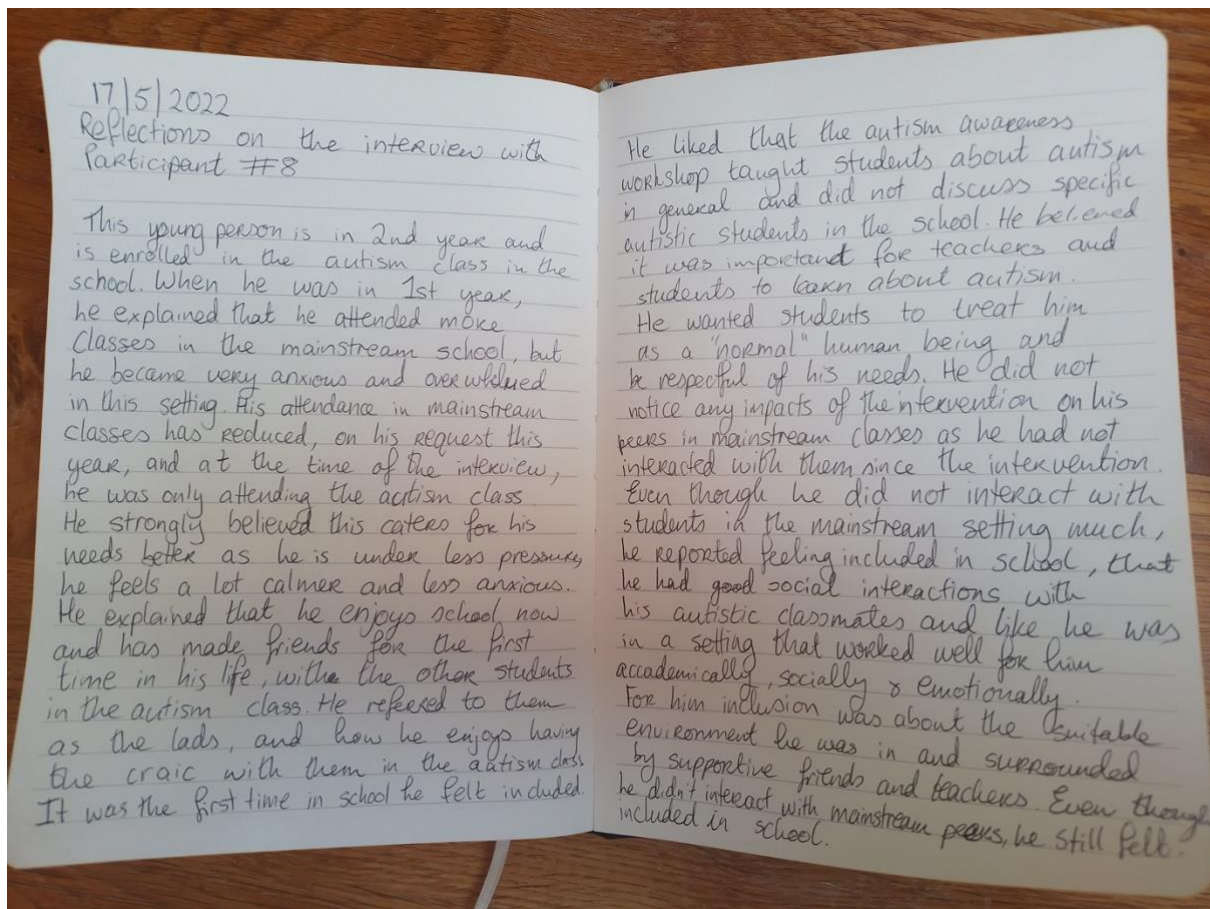 17/5/2022
Reflections on the interview with
Participant #8
This young person is in 2nd year and
is enrolled in the autism class in the
school. When he was in 1st year,
he explained that he attended more
Classes in the mainstream school, but
he became very anxious and overwhelmed
in this setting. His attendance in mainstream
classes has reduced, on his request this
year, and at the time of the interview,
he was only attending the autism class
He strongly believed this caters for his
needs better as he is under less pressure,
he feels a lot calmer and less anxious.
He explained that he enjoys school now
and has made friends for the first
time in his life, with the other students
in the autism class. He referred to them
as the lads, and how he enjoys having
the craic with them in the autism class
It was the first time in school he felt included.
He liked that the autism awareness
workshop taught students about autism
in general and did not discuss specific
autistic students in the school. He believed
it was important for teachers and
students to learn about autism.
He wanted students to treat him
as a "normal" human being and
be respectful of his needs. He did not
notice any impacts of the intervention on his
peers in mainstream classes as he had not
interacted with them since the intervention.
Even though he did not interact with
students in the mainstream setting much,
he reported feeling included in school, that
he had good social interactions with
his autistic classmates and like he was
in a setting that worked well for him
accademically, socially & emotionally.
For him inclusion was about the suitable
environment he was in and surrounded
by supportive friends and teachers. Even though
he didn't interact with mainstream peers, he still felt.
included in school.